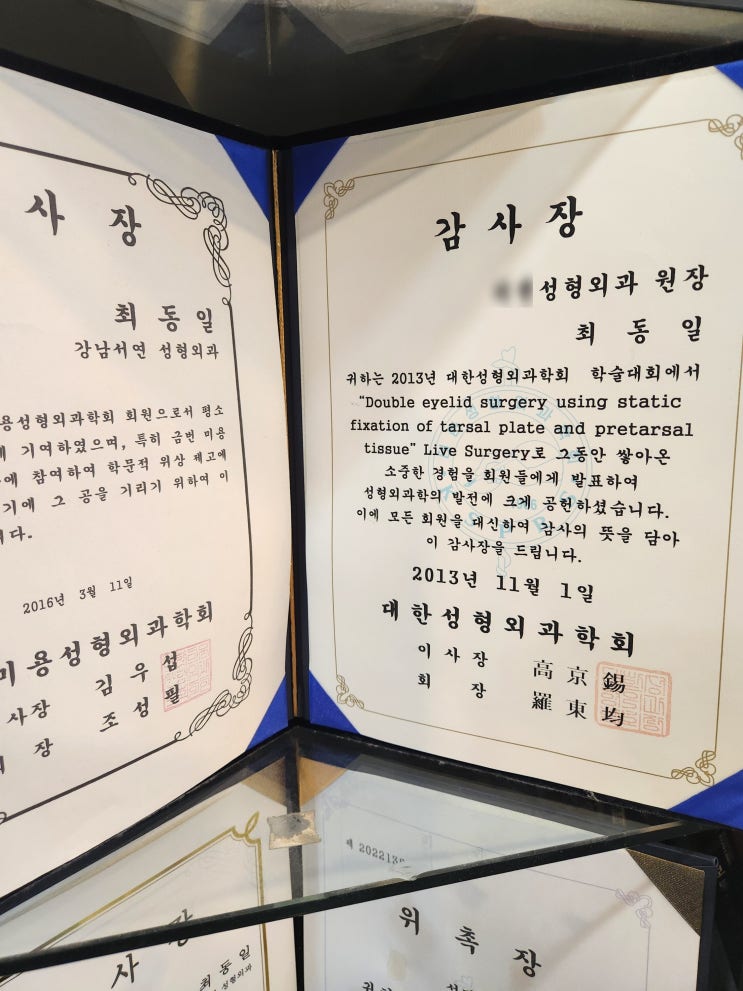 사 장
최 동 일
강남서연 성형외과
용성형외과학회 회원으로서 평소
기여하였으며, 특히 금번 미용
에 참여하여 학문적 위상 제고에
기에 그 공을 기리기 위하여 이
다.
2016년 3월 11일
미용성형외과학회
사장 김우섭
장 조성필
감 사 장
성형외과 원장
최 동 일
귀하는 2013년 대한성형외과학회 학술대회에서
“Double eyelid surgery using static
fixation of tarsal plate and pretarsal
tissue” Live Surgery로 그동안 쌓아온
소중한 경험을 회원들에게 발표하여
성형외과학의 발전에 크게 공헌하셨습니다.
이에 모든 회원을 대신하여 감사의 뜻을 담아
이 감사장을 드립니다.
2013년 11월 1일
대한성형외과학회
이 사 장 高 京 錫
회 장 羅 東 均
사 장
최동일
성형외과
제 202213
위 촉 장